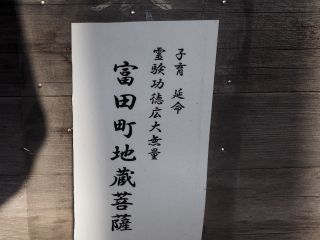 子育 延命
霊験功徳広大無量
富田町地蔵菩薩